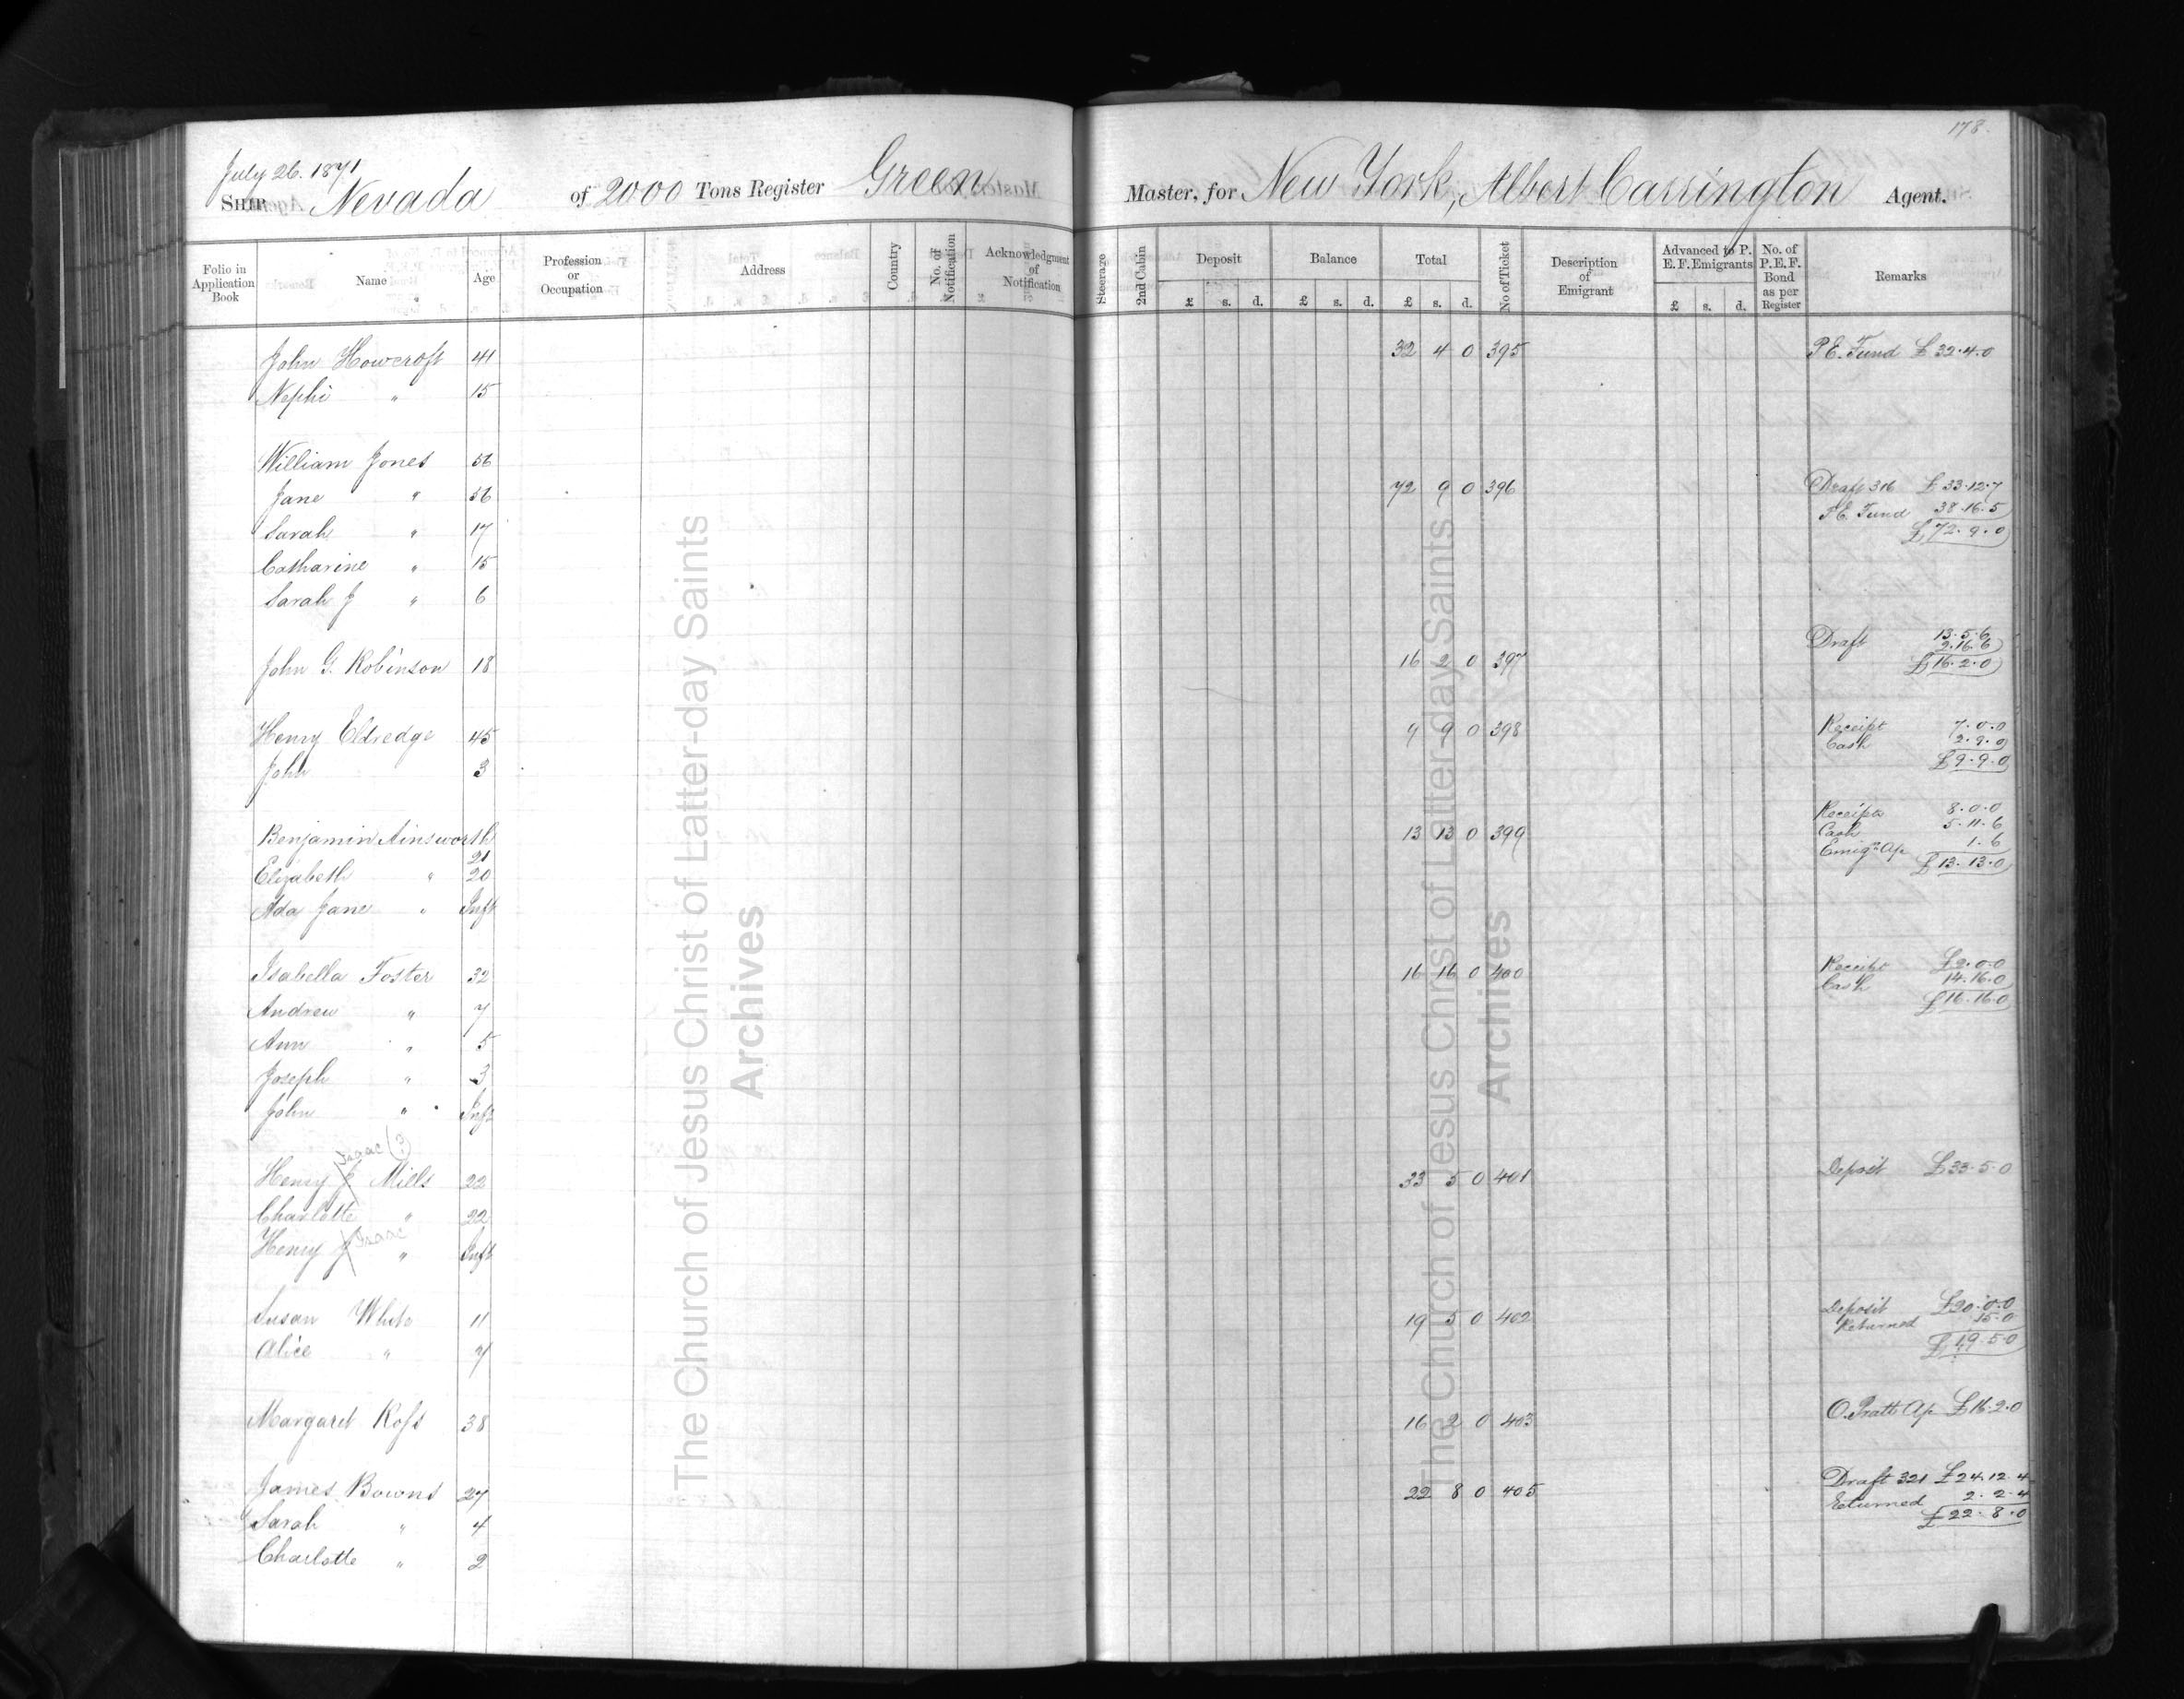 178.
July 26. 1871
SHIP Nevada of 2000 Tons Register Green Master, for New York, Albert Carrington Agent.
Folio in Application Book Name Age Profession or Occupation Address Country No. of Notification Acknowledgment of Notification Steerage 2nd Cabin Deposit Balance Total No of Ticket Description of Emigrant Advanced to P. E. F. Emigrants No. of P.E.F. Bond as per Register Remarks
£ s. d. £ s. d. £ s. d. £ s. d.
John Howcroft 41 32 4 0 395 P.E. Fund £ 32.4.0
Nephi " 15
William Jones 56
Jane " 56 72 9 0 396 Draft 316 £ 33.12.7
P.E. Fund 38.16.5
Sarah " 17 £72.9.0
Catharine " 15
Sarah J " 6
Draft 13.5.6
2.16.6
John G. Robinson 18 16 2 0 397 £16.2.0
Henry Eldredge 45 9 9 0 398 Receipt 7.0.0
Cash 2.9.0
John 3 £9.9.0
Receipts 8.0.0
Benjamin Ainsworth 21 13 13 0 399 Cash 5.11.6
Emign Ap 1.6
Elizabeth " 20 £13.13.0
Ada Jane " Inft
Isabella Foster 32 16 16 0 400 Receipt £2.0.0
Cash 14.16.0
£16.16.0
Andrew " 7
Ann " 5
Joseph " 3
John " Inft
Isaac (?)
Henry J Mills 22 33 5 0 401 Deposit £33.5.0
Charlotte " 22
Henry J Isaac " Inft
Susan White 11 19 5 0 402 Deposit £20.0.0
Returned 15.0
Alice " 7 £19.5.0
Margaret Ross 38 16 2 0 403 O. Pratt Ap £16.2.0
James Bowns 27 22 8 0 405 Draft 321 £24.12.4
Returned 2.2.4
Sarah " 4 £22.8.0
Charlotte " 2
The Church of Jesus Christ of Latter-day Saints
Archives
The Church of Jesus Christ of Latter-day Saints
Archives